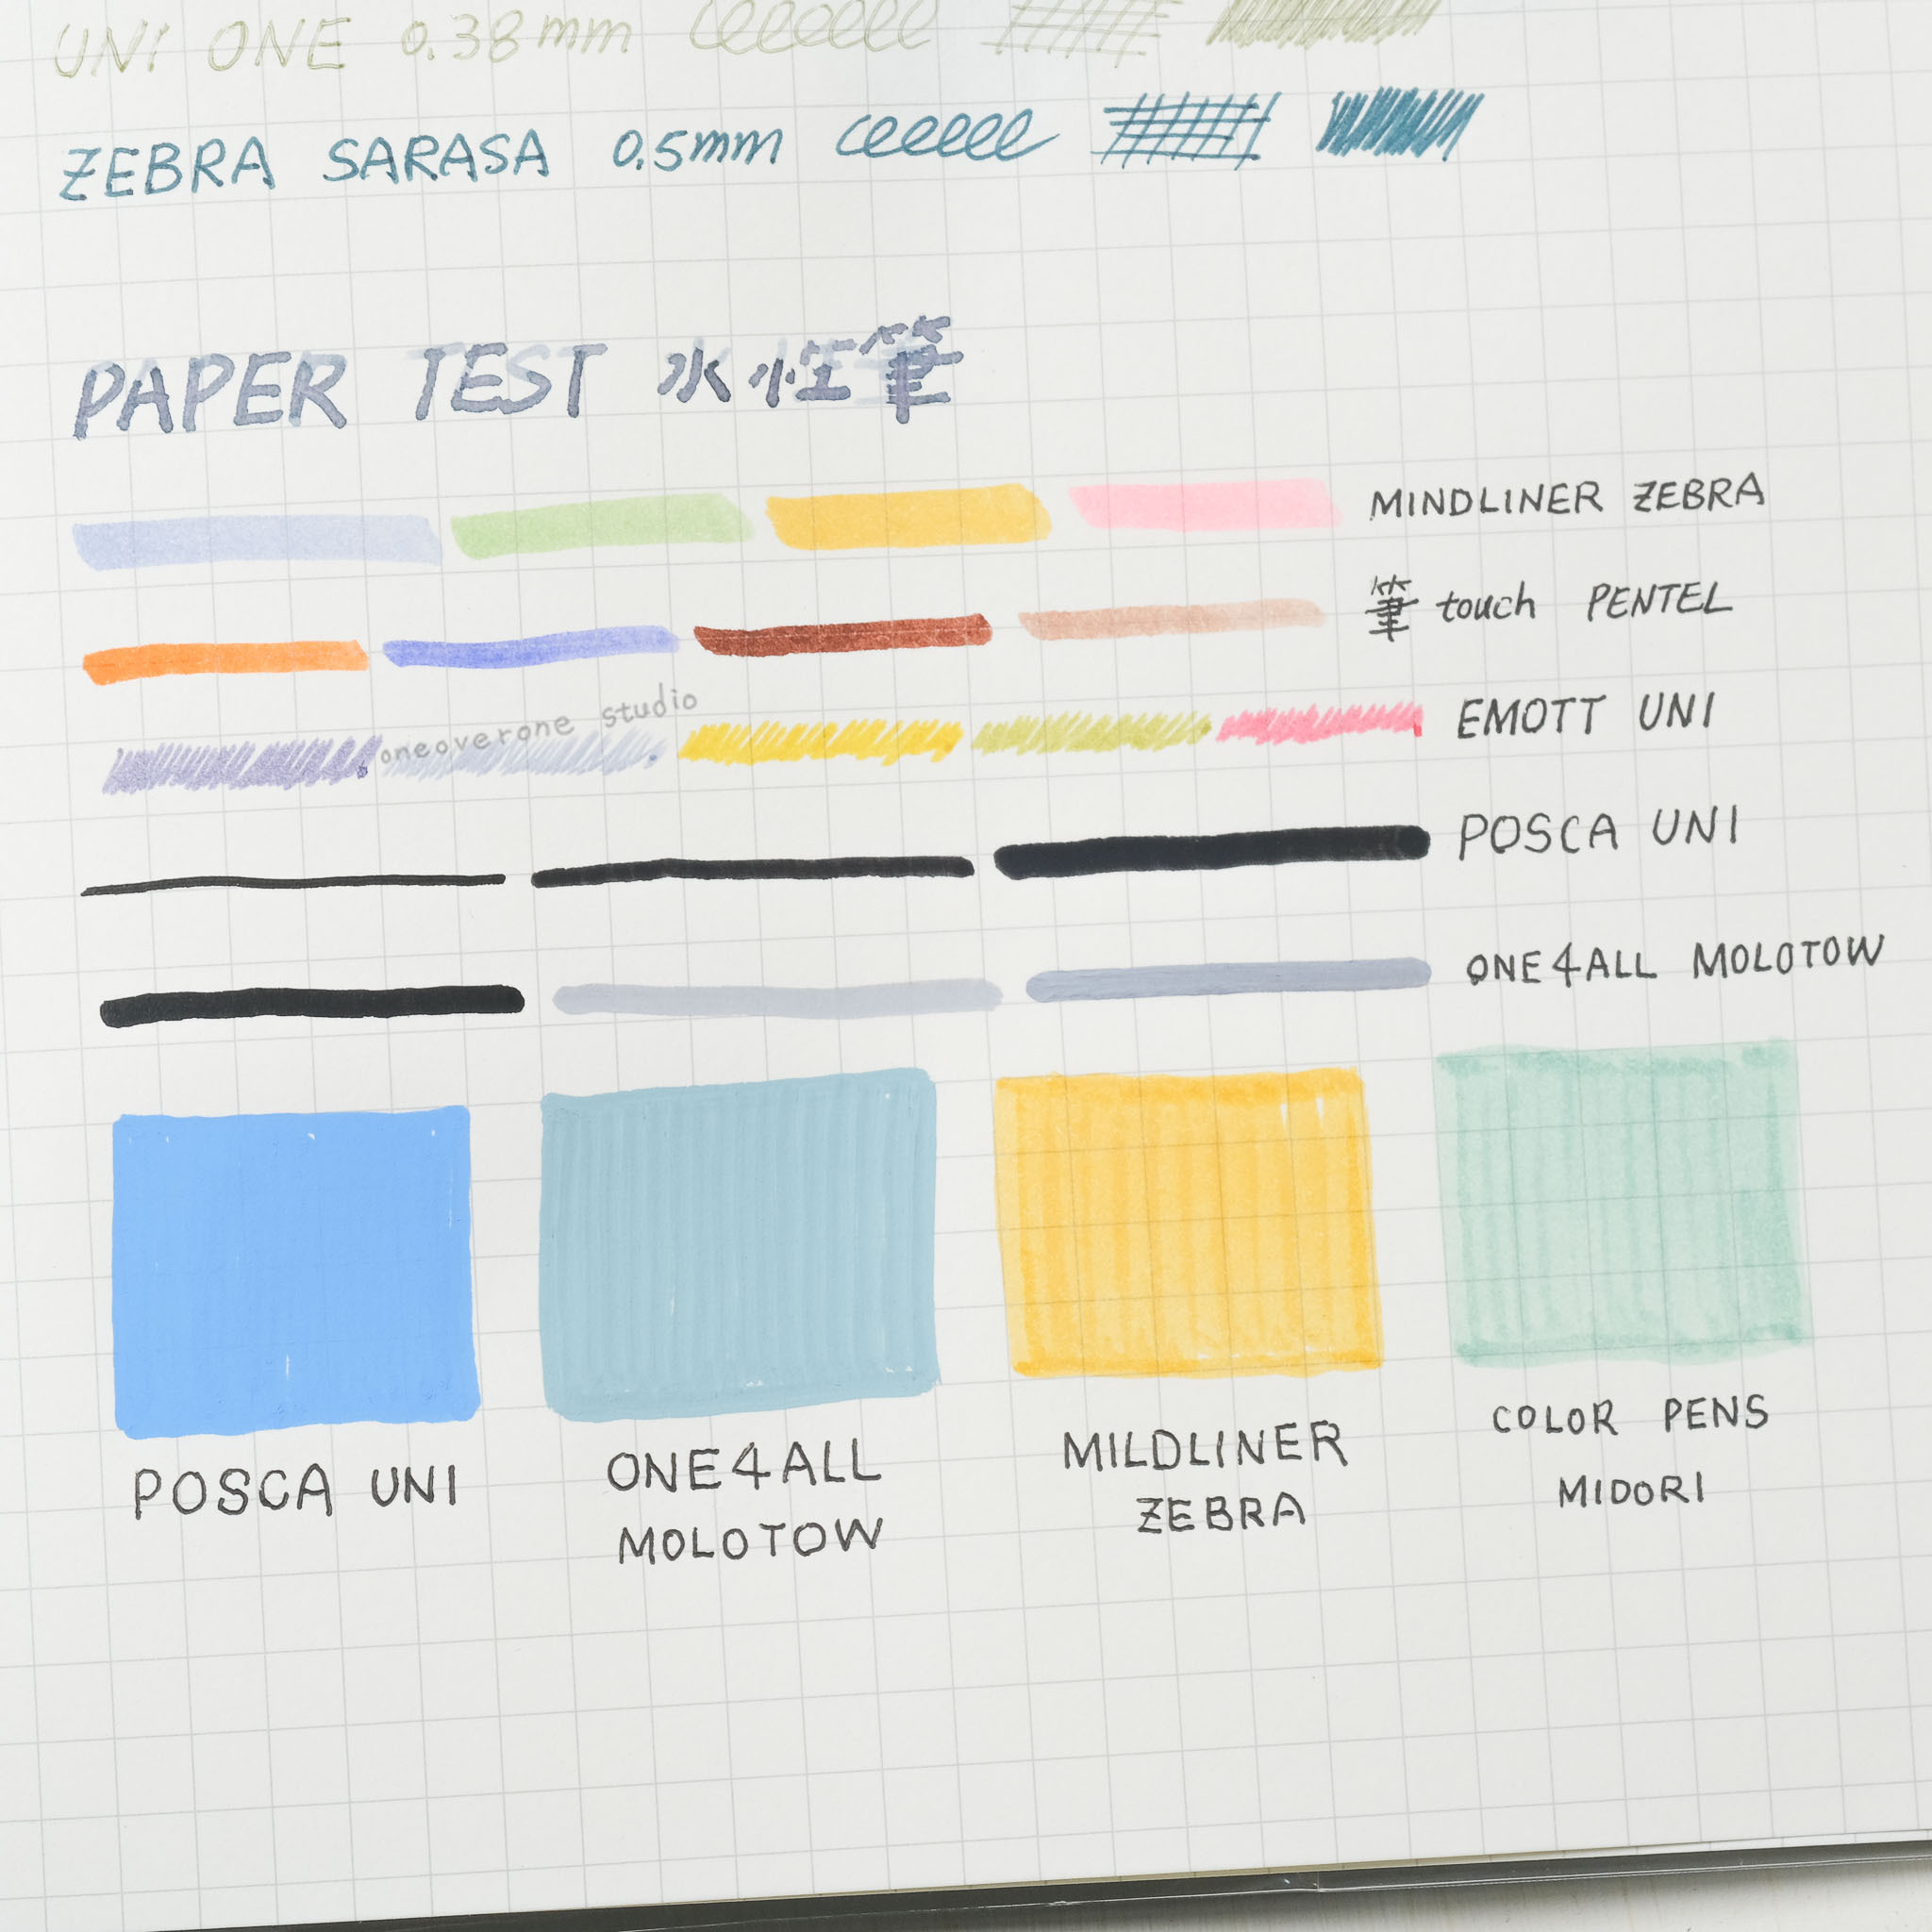 UNI ONE 0.38mm
ZEBRA SARASA 0.5mm
PAPER TEST 水性筆
MINDLINER ZEBRA
筆touch PENTEL
oneoverone studio
EMOTT UNI
POSCA UNI
ONE4ALL MOLOTOW
POSCA UNI
ONE4ALL
MOLOTOW
MILDLINER
ZEBRA
COLOR PENS
MIDORI